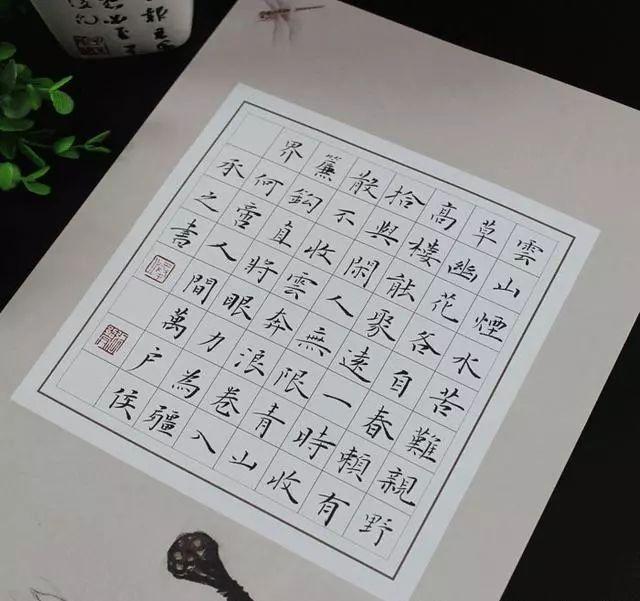 雲山煙水苦難親野
草幽花各自春賴有
高樓能聚遠一時收
拾與閑人無限青山
散不收雲奔浪卷入
簾鈎直將眼力為疆
界何啻人間萬户侯
之書